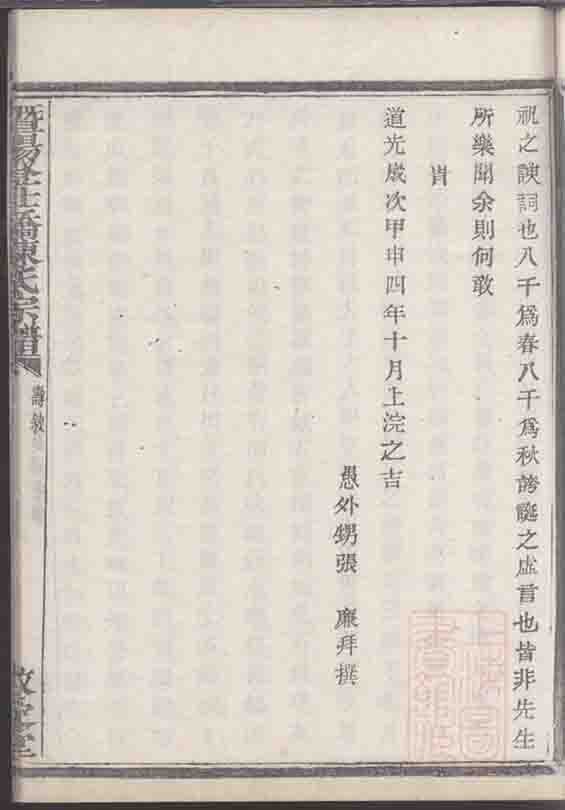 祝之諛詞也八千爲春八千爲秋誇誕之虛言也皆非先生
所樂聞余則何敢
旹
道光歲次甲申四年十月上浣之吉
愚外甥張 廉拜撰
暨陽 橋陳氏宗譜
壽敘
堂
上海圖書館藏